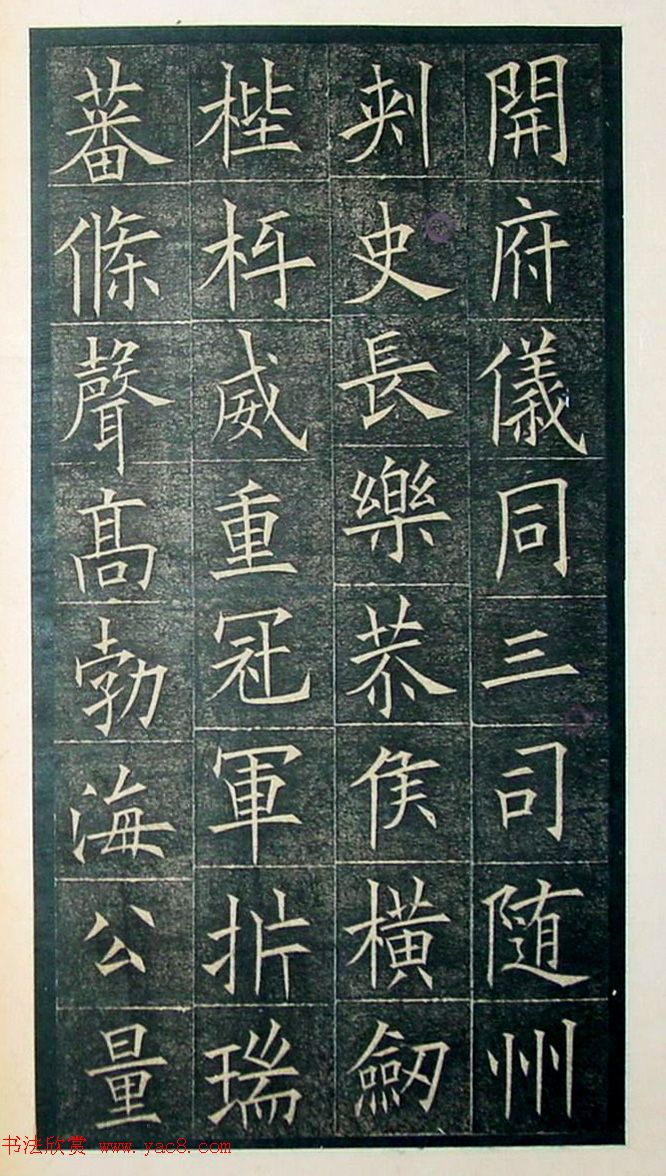 開府儀同三司隨州
刾史長樂恭侯橫劒
梐枑威重冠軍折瑞
蕃條聲髙勃海公量
书法欣赏 www.yac8.com